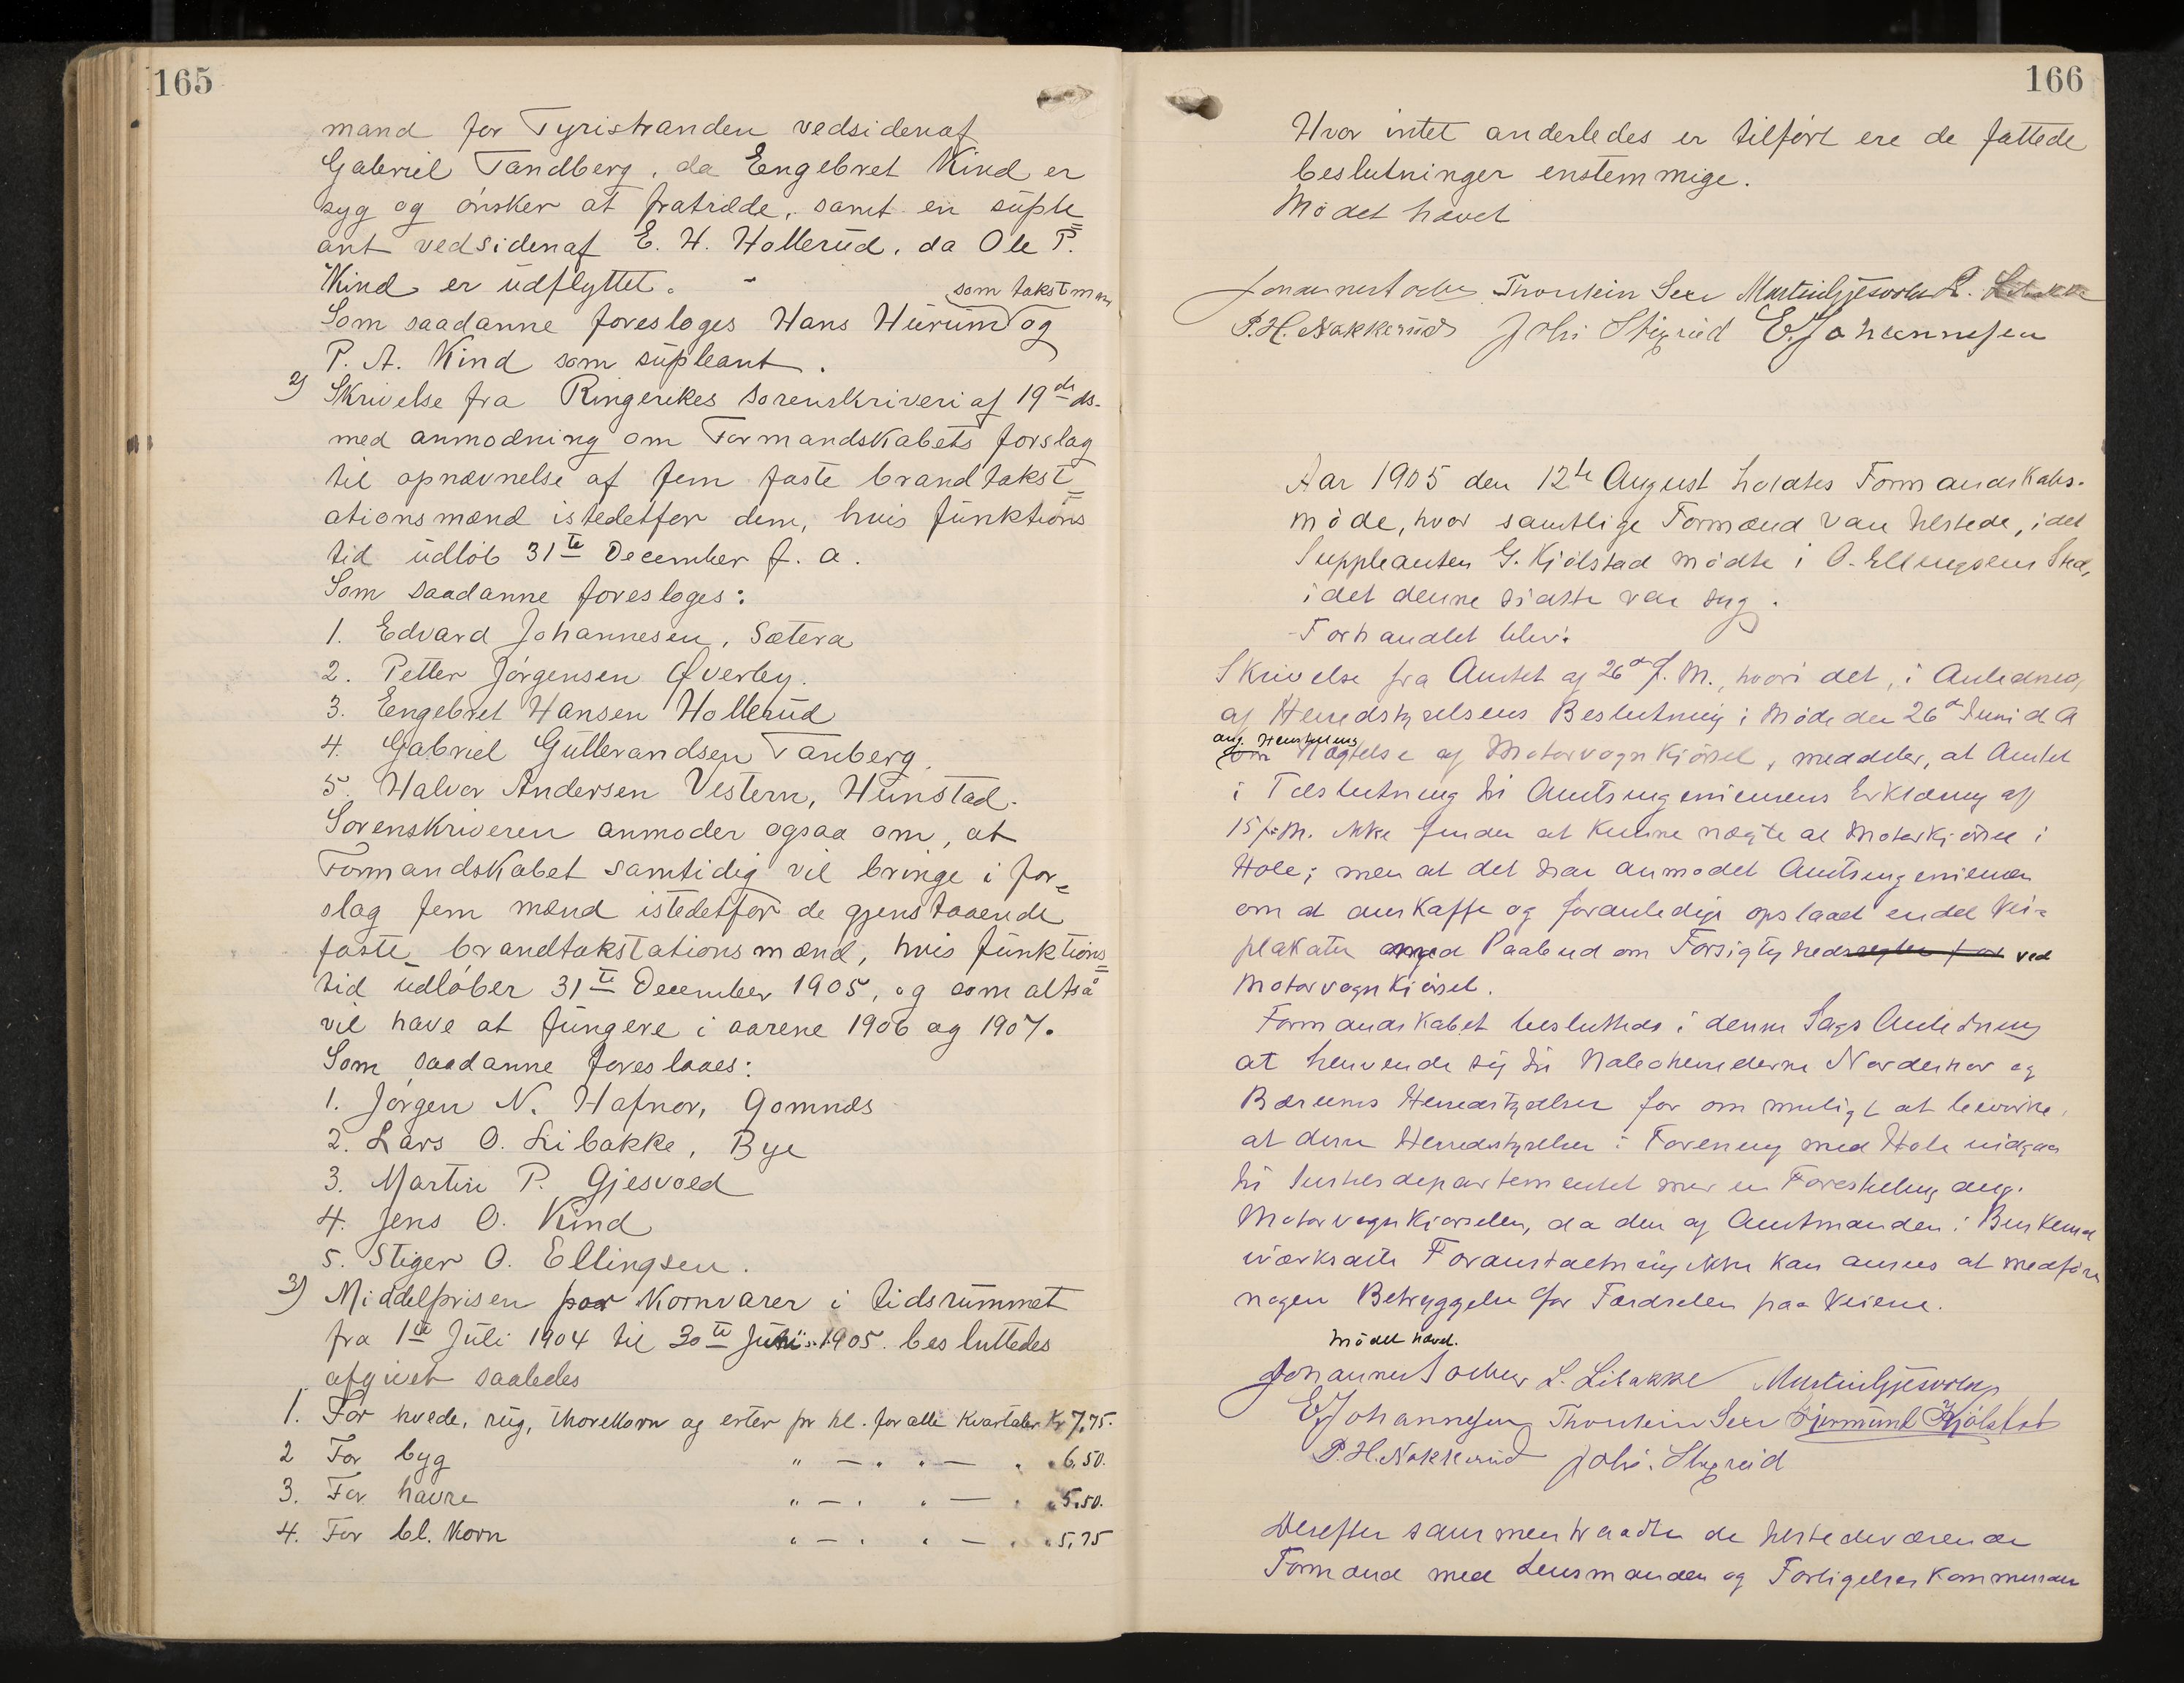 165
mand for Tyristranden vedsidenaf
Gabriel Tandberg, da Engebret Kind er
syg og ønsker at fratræde, samt en suple
ant vedsidenaf E. H. Hollerud, da Ole P.
Kind er udflyttet.
som takstman
Som saadanne foresloges Hans Hurum og
P. A. Kind som supleant.
2) Skrivelse fra Ringerikes sorenskriveri af 19de ds.
med anmodning om Formandskabets forslag
til opnævnelse af fem faste brandtakst=
ationsmænd istedetfor dem, hvis funktions
tid udløb 31te December f. a.
Som saadanne foresloges:
1. Edvard Johannesen, Sætera
2. Petter Jørgensen Øverby.
3. Engebret Hansen Hollerud
4. Gabriel Gullerandsen Tanberg.
5. Halvor Andersen Vestern, Hunstad.
Sorenskriveren anmoder ogsaa om, at
Formandskabet samtidig vil bringe i for=
slag fem mænd istedetfor de gjenstaaende
faste brandtakstationsmænd, hvis funktions=
tid udløber 31te December 1905, og som altså
vil have at fungere i aarene 1906 og 1907.
Som saadanne foreslaaes:
1. Jørgen N. Hafnor, Gomnæs
2. Lars O. Libakke, Bye
3. Martin P. Gjesvold
4. Jens O. Kind
5. Stiger O. Ellingsen.
3) Middelprisen paa Kornvarer i tidsrummet
fra 1te Juli 1904 til 30te Juni 1905. besluttedes
afgivet saaledes
1. For hvede, rug, thorekorn og erter pr hl. for alle Kvartaler Kr 7,75.
2 For byg " — . . — . . 6,50.
3. For havre " — . . — . . 5.50.
4. For bl. Korn . — . . — . . 5,75
166
Hvor intet anderledes er tilført ere de fattede
beslutninger enstemmige.
Mødet hævet
Thorstein Sexe Martin Gjesvold L. Libakke
P. H. Nakkerud E. Johannesen
Aar 1905 den 12te August holdtes Formandskabs-
møde, hvor samtlige Formænd var tilstede, idet
Suppleanten G. Kjølstad mødte i O. Ellingsens Sted,
idet denne sidste var syg.
Forhandlet blev:
Skrivelse fra Amtet af 26de f. M., hvori det, i Anledning
af Herredstyrelsens Beslutning i Møde den 26de Juni d A
ang. Henstilling
om Nægtelse af Motorvognkjørsel, meddeler, at Amtet
i Tilslutning til Amtsingeniørens Erklæring af
15 f. M. ikke finder at kunne nægte al Motorkjørsel i
Hole; men at det har anmodet Amtsingeniøren
om at anskaffe og foranledige opslaaet endel Vei=
plakater med Paabud om Forsigtighed ved
Motorvognkjørsel.
Formandskabet besluttede i denne Sags Anledning
at henvende sig til Naboherrederne Norderhov og
Bærums Herredstyrelser for om muligt at bevirke,
at disse Herredstyrelser i Forening med Hole indgaar
til departementet med en Forestilling ang.
Motorvognkjørselen, da den af Amtmanden i Buskerud
iværksatte Foranstaltning ikke kan ansees at medføre
nogen Betryggelse for Færdselen paa Veiene.
Mødet hævet.
L. Libakke Martin Gjesvold
E. Johannesen Thorstein Sexe Gjermund Kjølstad
P. H. Nakkerud
Derefter sammentraadte de tilstedeværende
Formænd med Lensmanden og Forligelseskommissæren